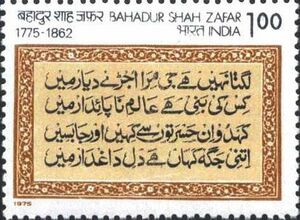 बहादुर शाह ज़फ़र BAHADUR SHAH ZAFAR
1775-1862
भारत INDIA
1.00
لگتا نہیں ہے جی مرا اجڑے دیار میں
کس کی بنی ہے عالم ناپائدار میں
کہدو ان حسرتوں سے کہیں اور جا بسیں
اتنی جگہ کہاں ہے دل داغدار میں
1975